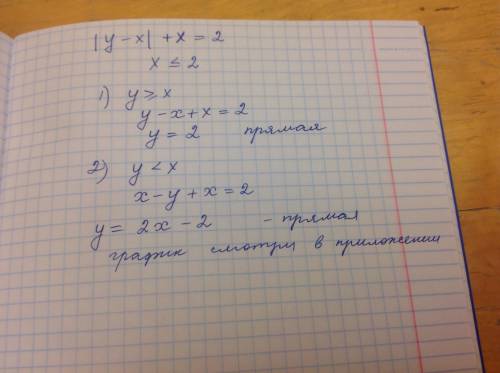 |y - x| + x = 2
x ≤ 2
1) y ≥ x
y - x + x = 2
y = 2 прямая
2) y < x
x - y + x = 2
y = 2x - 2 - прямая
график смотри в приложении